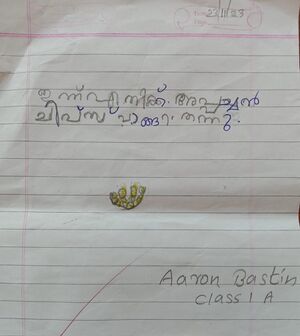 23/11/23
ഇന്ന് എനിക്ക് അപ്പച്ചൻ
ചിപ്സ് വാങ്ങി തന്നു.
Aaron Bastin
Class 1 A